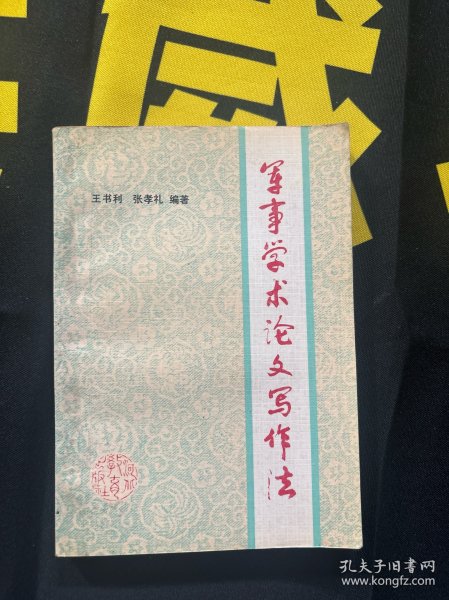 王书利 张孝礼 编著
军事学术论文写作法
河北教育出版社
孔夫子旧书网
www.kongfz.com